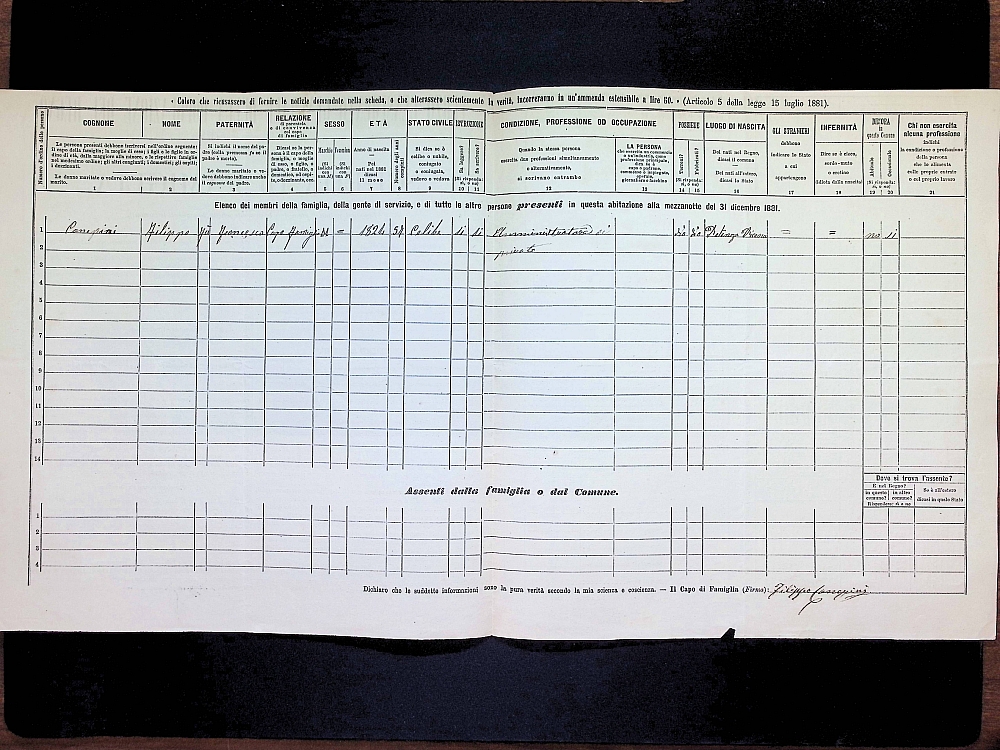 « Coloro che ricusassero di fornire le notizie domandate nella scheda, o che alterassero scientemente la verità, incorreranno in un'ammenda estensibile a lire 50. » (Articolo 5 della legge 15 luglio 1881).
Numero d'ordine delle persone
COGNOME
NOME
PATERNITÀ
RELAZIONE
di parentela
o di convivenza
col capo
di famiglia
SESSO
ETÀ
STATO CIVILE
ISTRUZIONE
CONDIZIONE, PROFESSIONE OD OCCUPAZIONE
POSSIEDE
LUOGO DI NASCITA
GLI STRANIERI
debbono
indicare lo Stato
a cui
appartengono
INFERMITÀ
DIMORA
in
questo Comune
Chi non esercita
alcuna professione
indichi
la condizione o professione
della persona
che lo alimenta
colle proprie entrate
o col proprio lavoro
Le persone presenti debbono iscriversi nell'ordine seguente:
il capo della famiglia; la moglie di esso; i figli e le figlie in ordine di età, dalla maggiore alla minore, e le rispettive famiglie
nel medesimo ordine; gli altri congiunti; i domestici; gli ospiti;
i dozzinanti.
Le donne maritate o vedove debbono scrivere il cognome del
marito.
Si indichi il nome del padre
Le donne maritate o vedove debbono indicare anche
il cognome del padre.
Maschio
Femmina
Anno di nascita
Pei
nati nel 1881
dicasi
il mese
Numero degli anni compiuti
Si dica se è
celibe o nubile,
coniugato
o coniugata,
vedovo o vedova
Sa leggere?
Sa scrivere?
(Si risponda: si, o no)
Quando la stessa persona
esercita due professioni simultaneamente
o alternativamente,
si scrivano entrambe
LA PERSONA
Terreni?
Fabbricati?
(Si risponda: si, o no)
Dei nati nel Regno,
dicasi il comune
Dei nati all'estero,
dicasi lo Stato
Dire se è cieco,
sordo-muto
o cretino
idiota dalla nascita
Abituale
Occasionale
(Si risponda: si, o no)
1 2 3 4 5 6 7 8 9 10 11 12 13 14 15 16 17 18 19 20 21
Elenco dei membri della famiglia, della gente di servizio, e di tutte le altre persone presenti in questa abitazione alla mezzanotte del 31 dicembre 1881.
1 Filippo Francesco Capo famiglia M = 1824 57 Celibe si si si si Vicenza = = no si
privato
2
3
4
5
6
7
8
9
10
11
12
13
14
Assenti dalla famiglia o dal Comune.
Dove si trova l'assente?
È nel Regno?
in questo
comune?
in altro
comune?
Rispondere: si o no
Se è all'estero
dicasi in quale Stato
1
2
3
4
Dichiaro che le suddette informazioni sono la pura verità secondo la mia scienza e coscienza. — Il Capo di Famiglia (Firma): Filippo